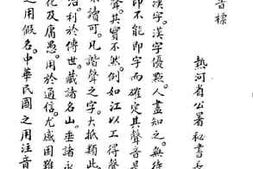 音標
熱河省公署秘書長
漢字。漢字優點。人盡知之。無待
即不能即字而確定其聲音是
聲。其實不然。例如江以工得聲
不讀可。凡諧聲之字。大抵類此
治利於傳世。藏諸名山。垂諸永
化及庸愚。用於通信。尤感困難
之用假名。中華民國之用注音